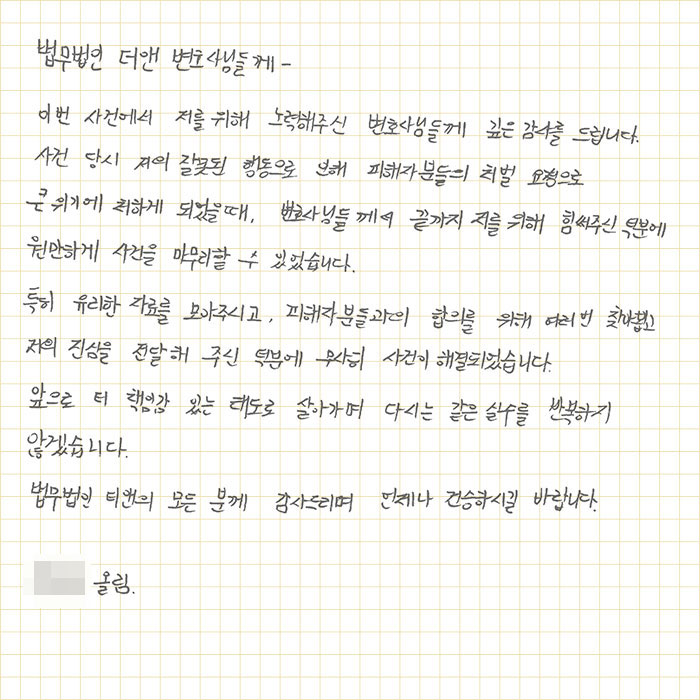 법무법인 더앤 변호사님들께-
이번 사건에서 저를 위해 노력해주신 변호사님들께 깊은 감사를 드립니다.
사건 당시 저의 잘못된 행동으로 인해 피해자분들의 처벌 요청으로
큰 위기에 처하게 되었을때, 변호사님들께서 끝까지 저를 위해 힘써주신 덕분에
원만하게 사건을 마무리할 수 있었습니다.
특히 유리한 자료를 모아주시고, 피해자분들과의 합의를 위해 여러번 찾아뵙고
저의 진심을 전달해 주신 덕분에 무사히 사건이 해결되었습니다.
앞으로 더 책임감 있는 태도로 살아가며 다시는 같은 실수를 반복하지
않겠습니다.
법무법인 더앤의 모든 분께 감사드리며 언제나 건승하시길 바랍니다.
올림.